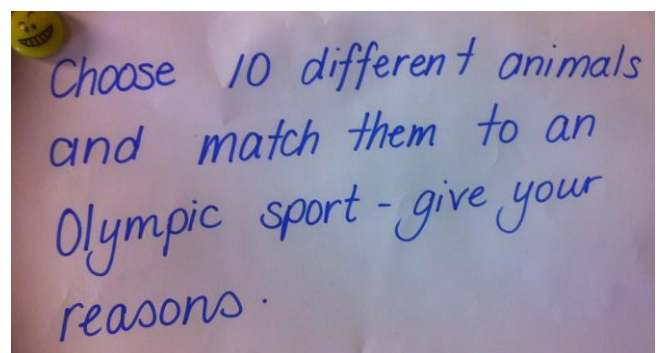 Choose 10 different animals
and match them to an
Olympic sport - give your
reasons.